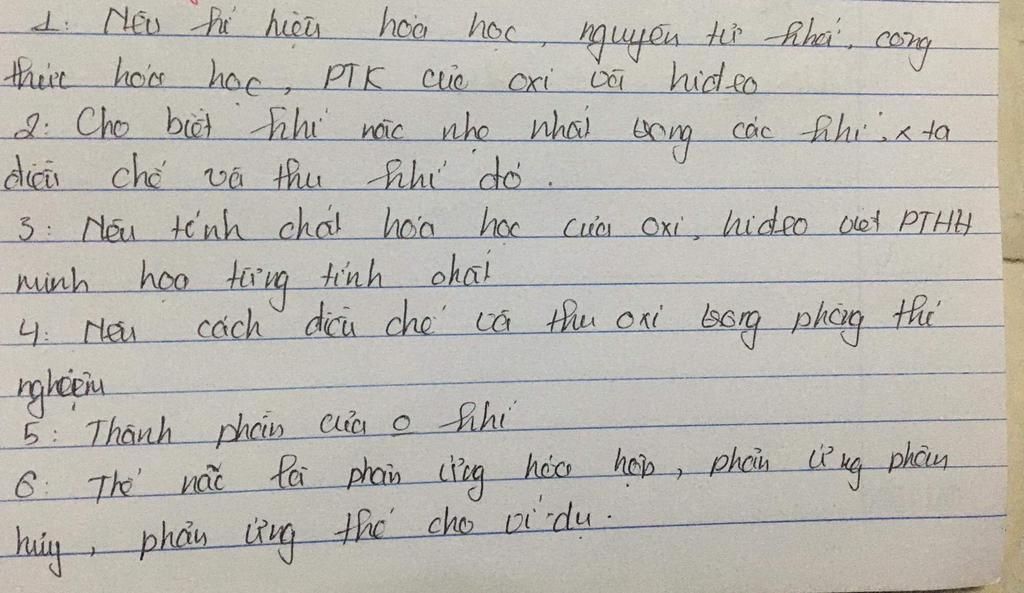 1: Nêu kí hiệu hoá học, nguyên tử khối, công
thức hoá học, PTK của oxi và hidro
2: Cho biết khí nào nhẹ nhất trong các khí, x ta
điều chế và thu khí đó.
3: Nêu tính chất hoá học của oxi, hidro viết PTHH
minh hoạ từng tính chất
4: Nêu cách điều chế và thu oxi trong phòng thí
nghiệm
5: Thành phần của o khí
6: Thế nào là phản ứng hoá hợp, phản ứng phân
huỷ, phản ứng thế cho ví dụ.